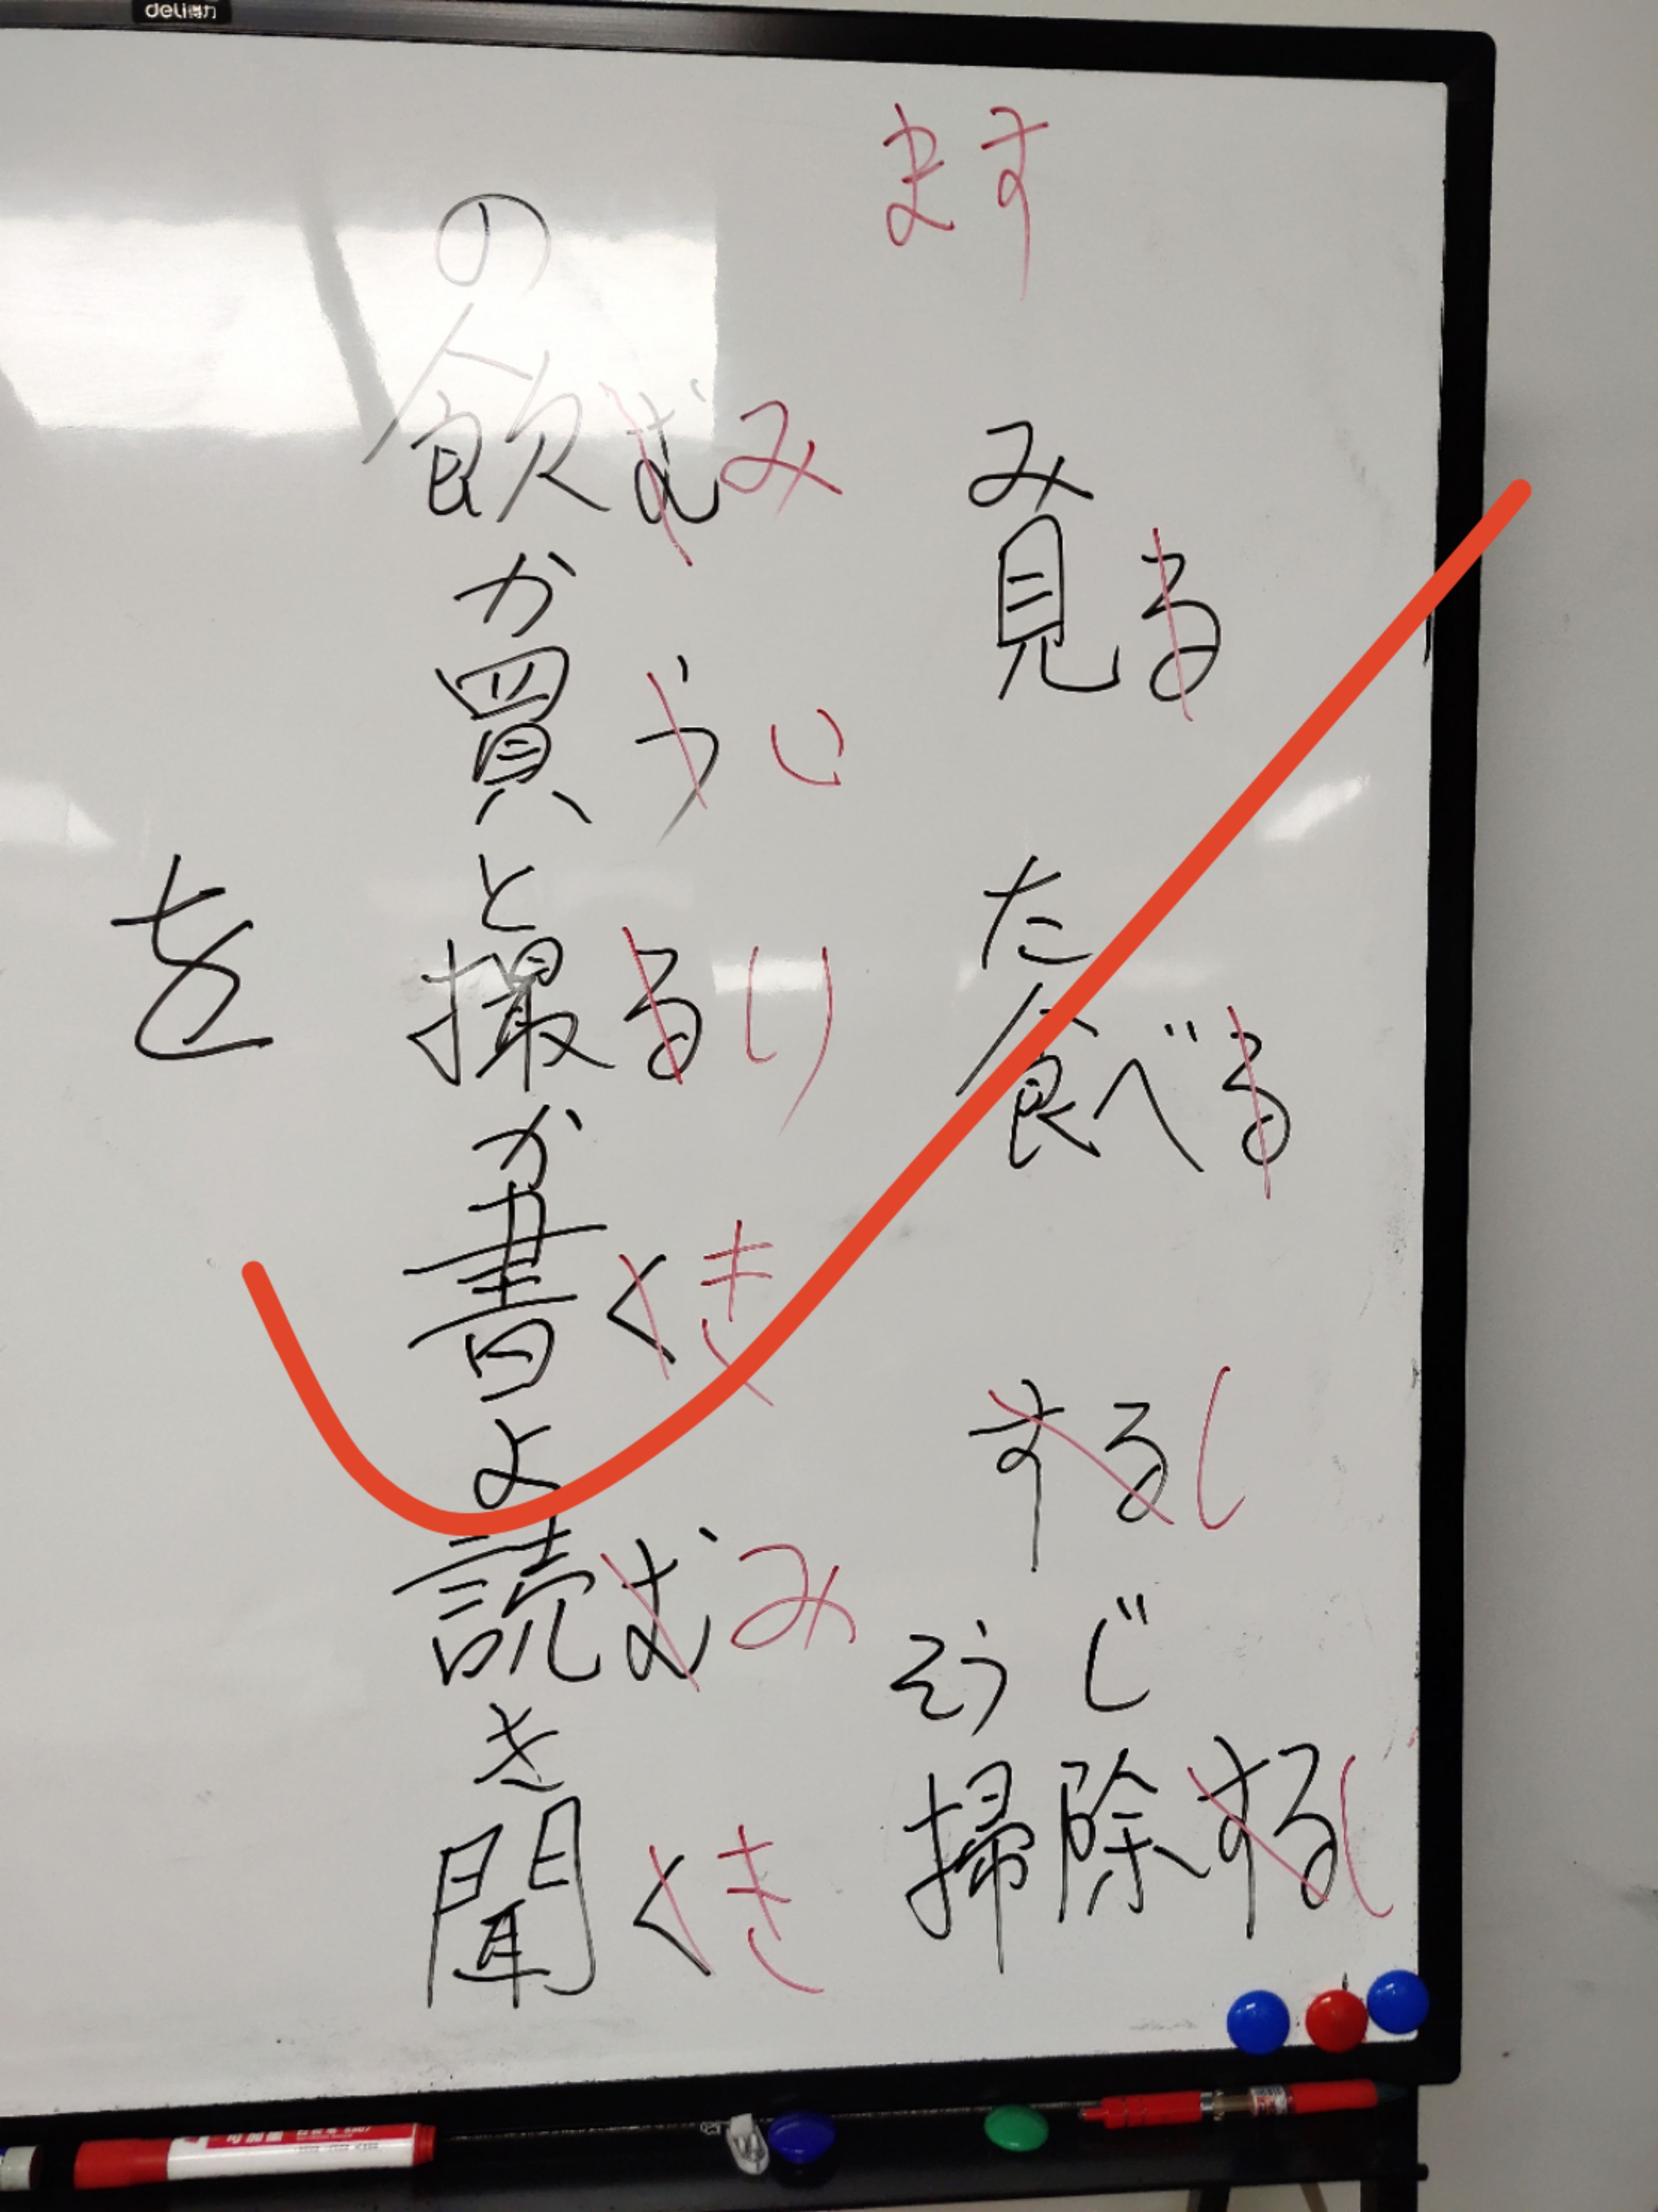 deli得力
ます
の
飲むみ
か
買うい
と
撮るり
か
書くき
よ
読むみ
き
聞くき
を
み
見る
た
食べる
するし
そうじ
掃除するし